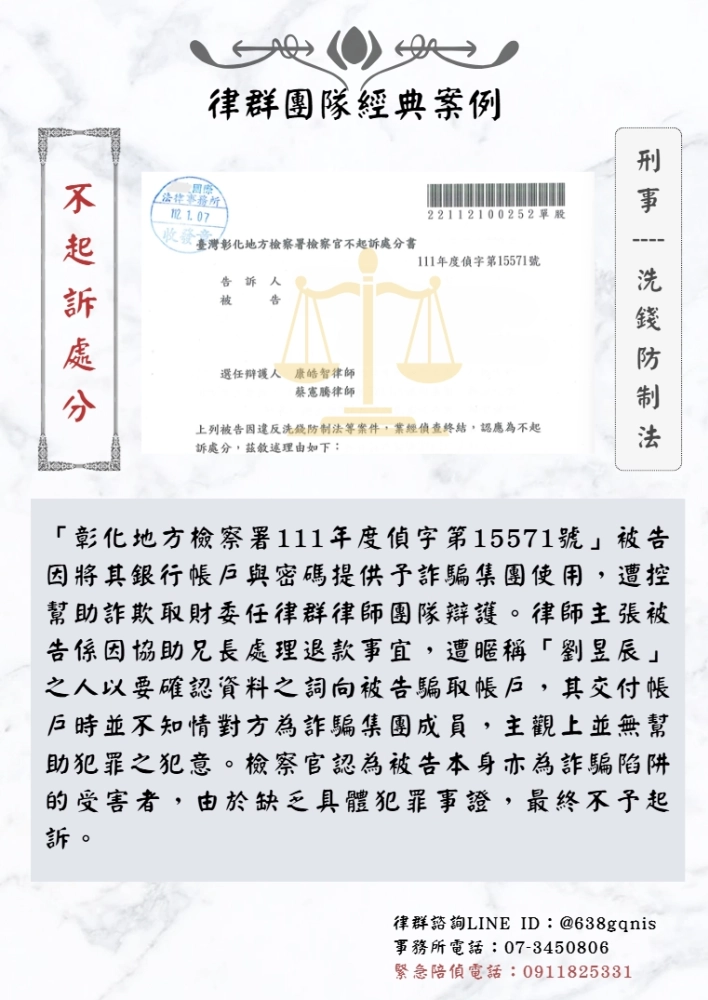 律群團隊經典案例
不起訴處分
刑事----洗錢防制法
國際
法律事務所
112.1.07
收發章
22112100252單股
臺灣彰化地方檢察署檢察官不起訴處分書
111年度偵字第15571號
告訴人
被告
選任辯護人 康皓智律師
蔡憲騰律師
上列被告因違反洗錢防制法等案件，業經偵查終結，認應為不起
訴處分，茲敘述理由如下：
「彰化地方檢察署111年度偵字第15571號」被告
因將其銀行帳戶與密碼提供予詐騙集團使用，遭控
幫助詐欺取財委任律群律師團隊辯護。律師主張被
告係因協助兄長處理退款事宜，遭暱稱「劉昱辰」
之人以要確認資料之詞向被告騙取帳戶，其交付帳
戶時並不知情對方為詐騙集團成員，主觀上並無幫
助犯罪之犯意。檢察官認為被告本身亦為詐騙陷阱
的受害者，由於缺乏具體犯罪事證，最終不予起
訴。
律群諮詢LINE ID：@638gqnis
事務所電話：07-3450806
緊急陪偵電話：0911825331